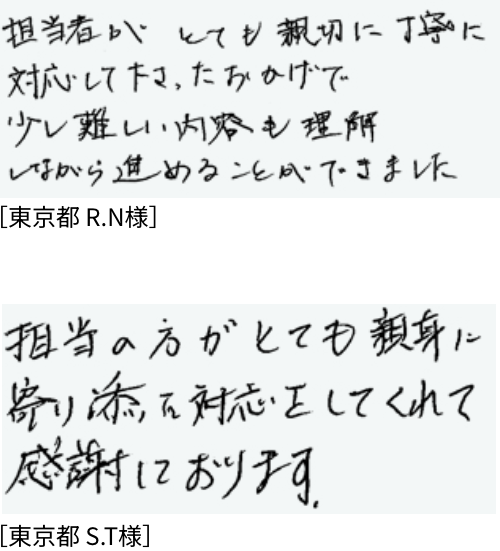 担当者が とても親切に丁寧に
対応して下さったおかげで
少し難しい内容も理解
しながら進めることができました
[東京都 R.N様]
担当の方がとても親身に
寄り添った対応をしてくれて
感謝しております。
[東京都 S.T様]